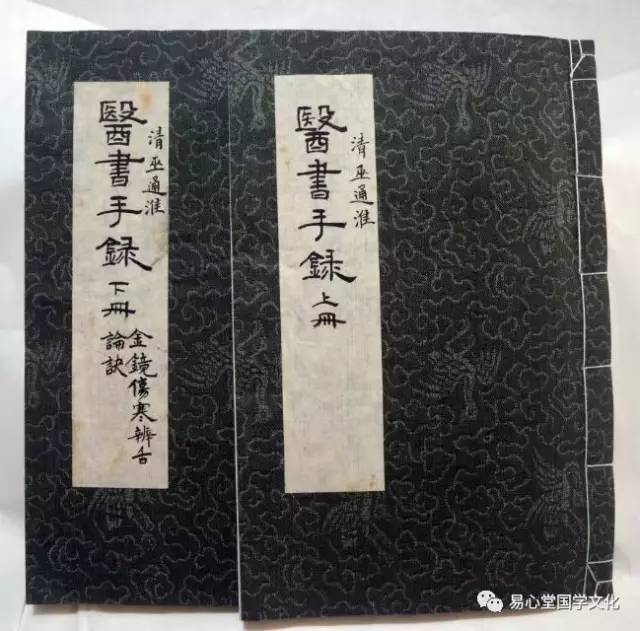 清巫通淮
醫書手録上冊
清巫通淮
醫書手録下冊
金鏡傷寒辨舌
論訣
易心堂国学文化